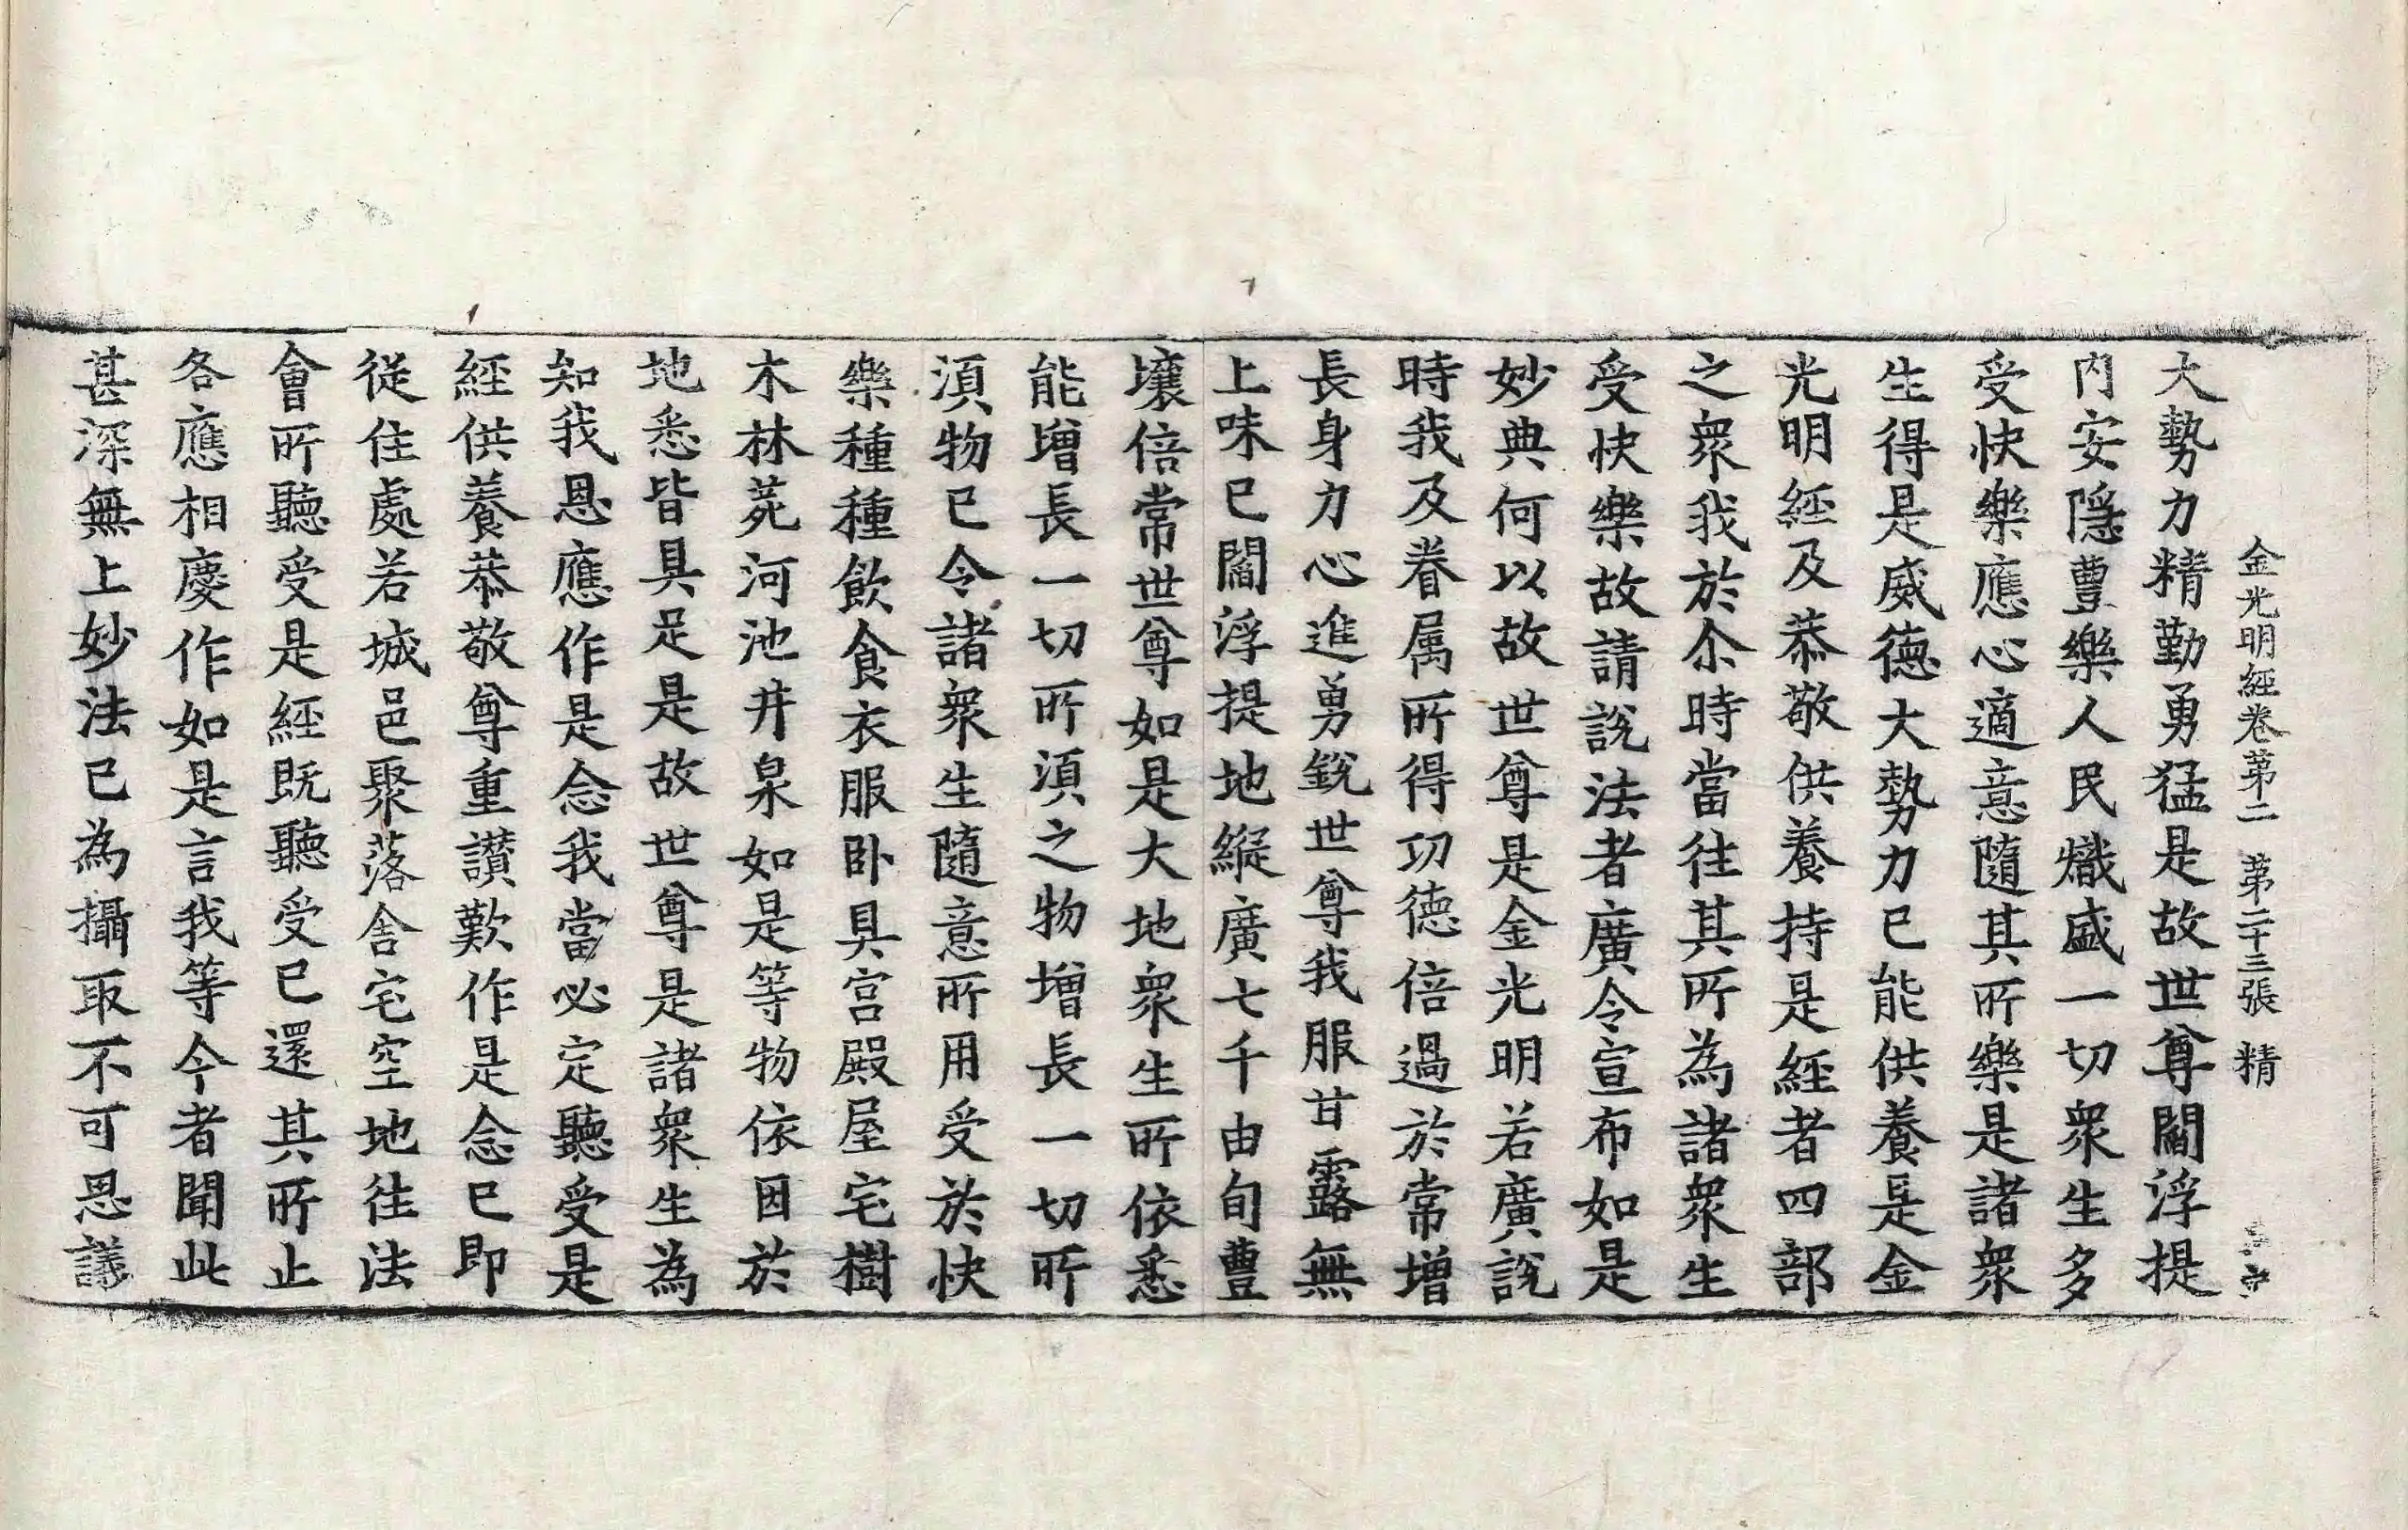 金光明經卷第二 第二十三張 精
大勢力精勤勇猛是故世尊閻浮提
内安隱豊樂人民熾盛一切衆生多
受快樂應心適意隨其所樂是諸衆
生得是威德大勢力已能供養是金
光明經及恭敬供養持是經者四部
之衆我於尒時當往其所為諸衆生
受快樂故請說法者廣令宣布如是
妙典何以故世尊是金光明若廣說
時我及眷属所得功德倍過於常增
長身力心進勇銳世尊我服甘露無
上味已閻浮提地縱廣七千由旬豊
壤倍常世尊如是大地衆生所依悉
能增長一切所湏之物增長一切所
湏物已令諸衆生隨意所用受於快
樂種種飲食衣服卧具宮殿屋宅樹
木林苑河池井泉如是等物依因於
地悉皆具足是故世尊是諸衆生為
知我恩應作是念我當必定聽受是
經供養恭敬尊重讃歎作是念已即
從住處若城邑聚落舍宅空地往法
會所聽受是經既聽受已還其所止
各應相慶作如是言我等今者聞此
甚深無上妙法已為攝取不可思議